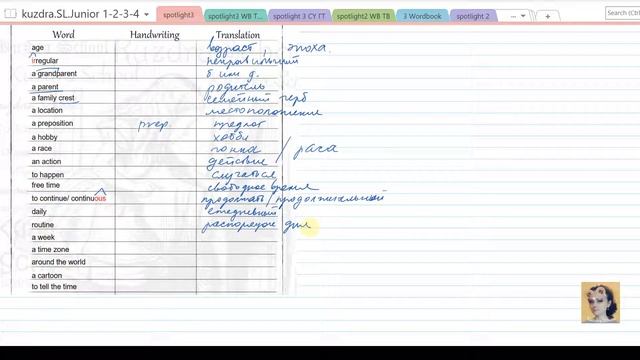 kuzdra.SL.Junior 1-2-3-4
spotlight3
spotlight3 WB T...
spotlight 3 CY ГТ
spotlight2 WB ТВ
3 Wordbook
spotlight2
+
Search (Ctrl
Word Handwriting Translation
age возраст, эпоха.
irregular неправильный
a grandparent б или д.
a parent родитель
a family crest семейный герб
a location местоположение
a preposition prep. предлог
a hobby хобби
a race гонка / раса
an action действие
to happen случаться
free time свободное время
to continue/ continuous продолжать/продолжительный
daily ежедневный
routine распорядок дня
a week
a time zone
around the world
a cartoon
to tell the time